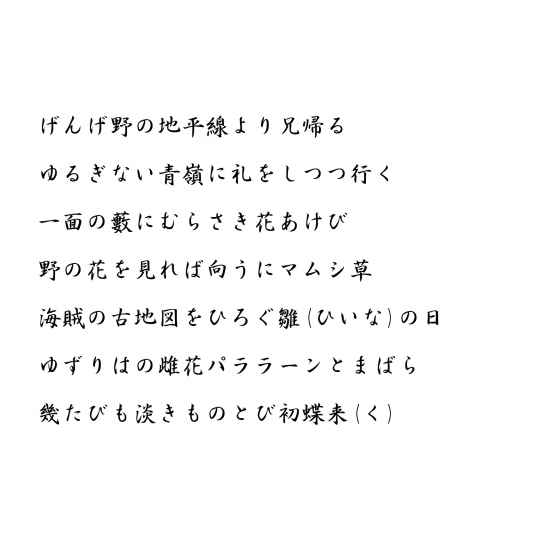 げんげ野の地平線より兄帰る
ゆるぎない青嶺に礼をしつつ行く
一面の藪にむらさき花あけび
野の花を見れば向うにマムシ草
海賊の古地図をひろぐ雛(ひいな)の日
ゆずりはの雌花パララーンとまばら
幾たびも淡きものとび初蝶来(く)